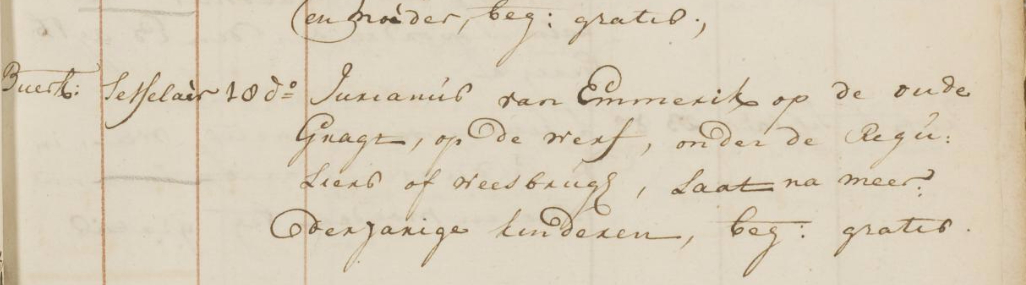 en moeder, beg: gratis.,
Buerk: Setselaer 18 do Jurianus van Emmerik op de oude
Gragt, op de werf, onder de Regu:
liers of weesbrug, Laat na meer:
derjarige kinderen, beg: gratis.